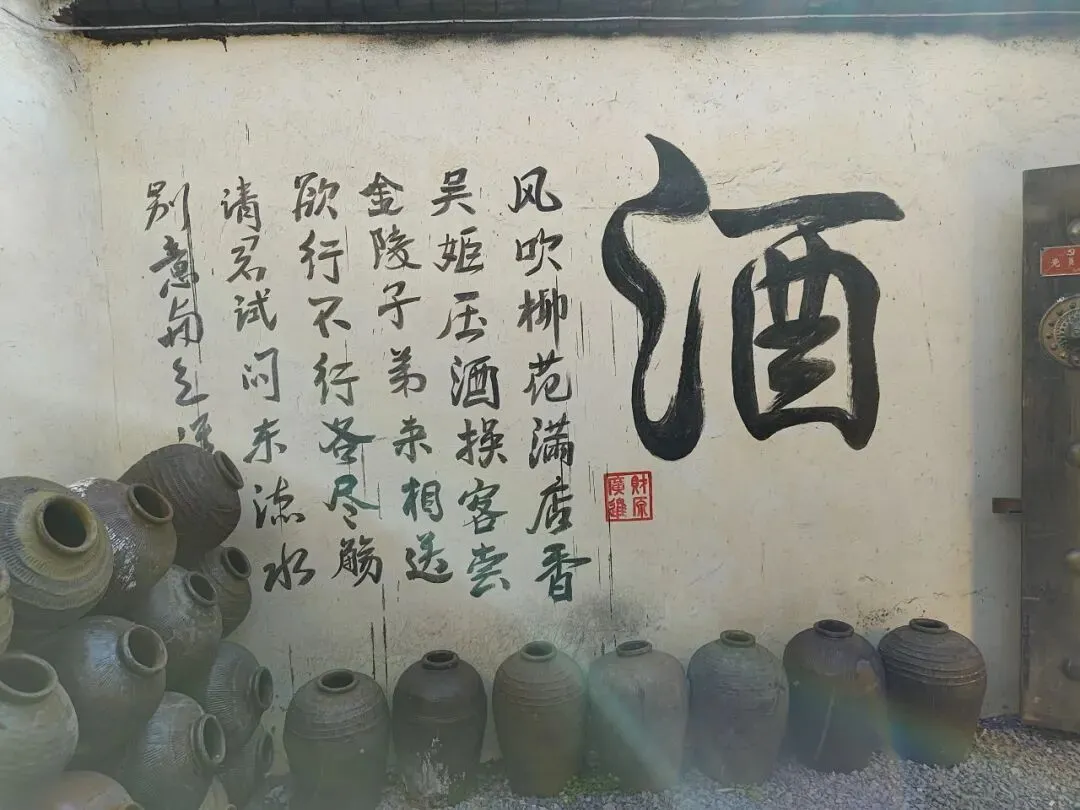 酒
财原廣進
风吹柳花满店香
吴姬压酒换客尝
金陵子弟来相送
欲行不行各尽觞
请君试问东流水
别意与之